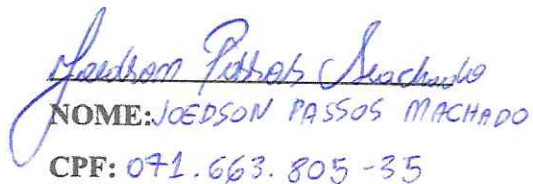 Joedson Passos Machado
NOME: JOEDSON PASSOS MACHADO
CPF: 071.663.805-35